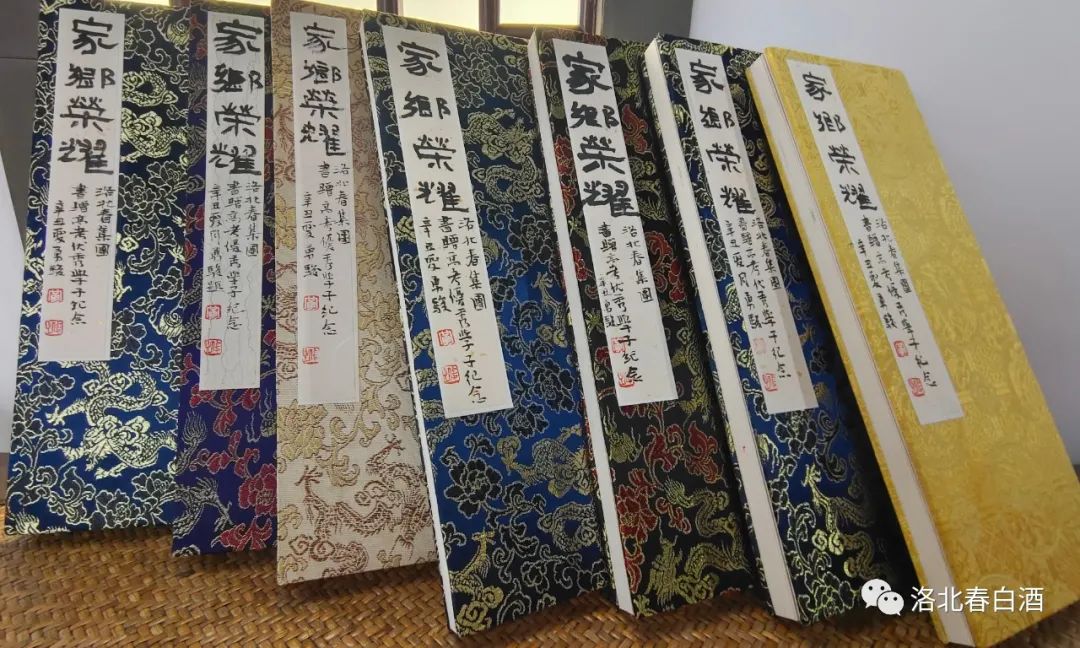 家鄉榮耀
洛北春集團
書贈高考优秀學子紀念
辛丑夏
家鄉榮耀
洛北春集團
書贈高考優秀學子紀念
辛丑夏月
家鄉榮耀
洛北春集團
書贈高考優秀學子紀念
辛丑夏
家鄉榮耀
洛北春集團
書贈高考優秀學子紀念
辛丑夏
家鄉榮耀
洛北春集團
書贈高考优秀學子紀念
辛丑
家鄉榮耀
洛北春集團
書贈高考优秀學子紀念
辛丑夏月
家鄉榮耀
洛北春集團
書贈高考優秀學子紀念
辛丑夏
洛北春白酒